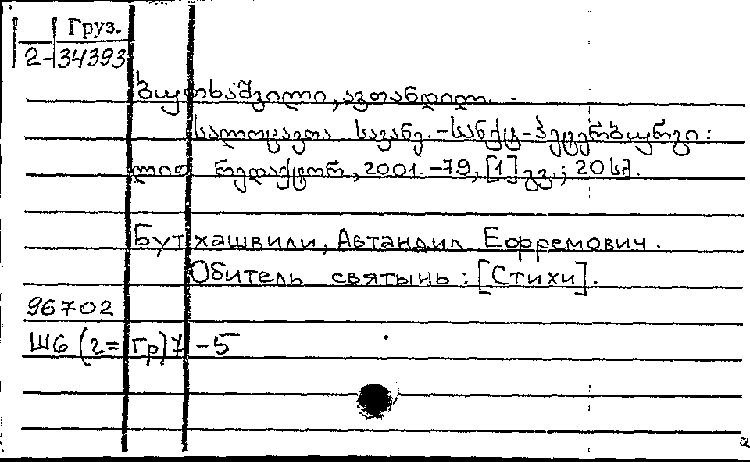 Груз.
2-34393
ბუთხაშვილი, ავთანდილ.
სალოცავთა სავანე. - სანქტ-პეტერბურგი:
ლიო რედაქტორ, 2001. -79, [1] გვ.; 20 სმ.
Бутхашвили, Автандил Ефремович.
Обитель святынь: [Стихи].
96702
Ш6 (2=Гр)7-5